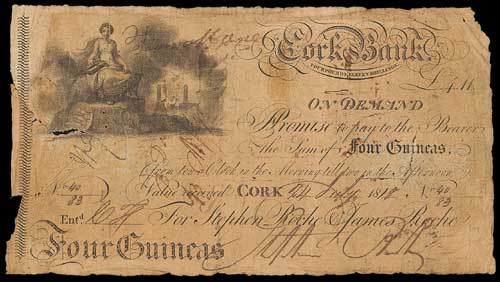 Cork Bank.
FOUR POUNDS, ELEVEN SHILLINGS.
£4.11
ON DEMAND
Promise to pay to the Bearer
the Sum of Four Guineas,
from ten o'Clock in the Morning till two in the Afternoon
No. 40/83 Value received CORK 14 July 1818 No. 40/83
Entd. For Stephen Roche & James Roche
Four Guineas